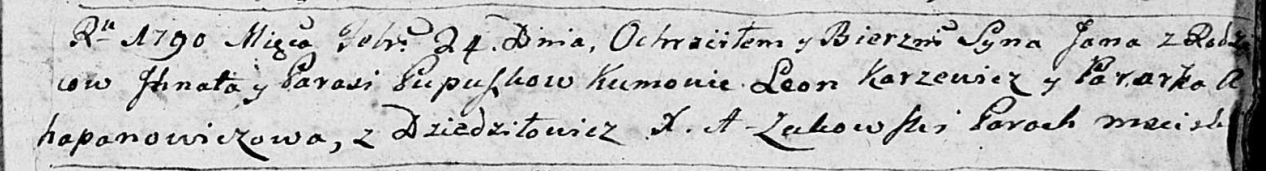 Rku 1790 Mięca Febr. 24. Dnia, Ochrzciłem y Bierzm. Syna Jana z Rodzi
cow Jhnata y Parasi Pupuszkow Kumowie Leon Karzewicz y Pararka A
hapanowiczowa, z Dziedziłowicz X. A Zukowski Paroch